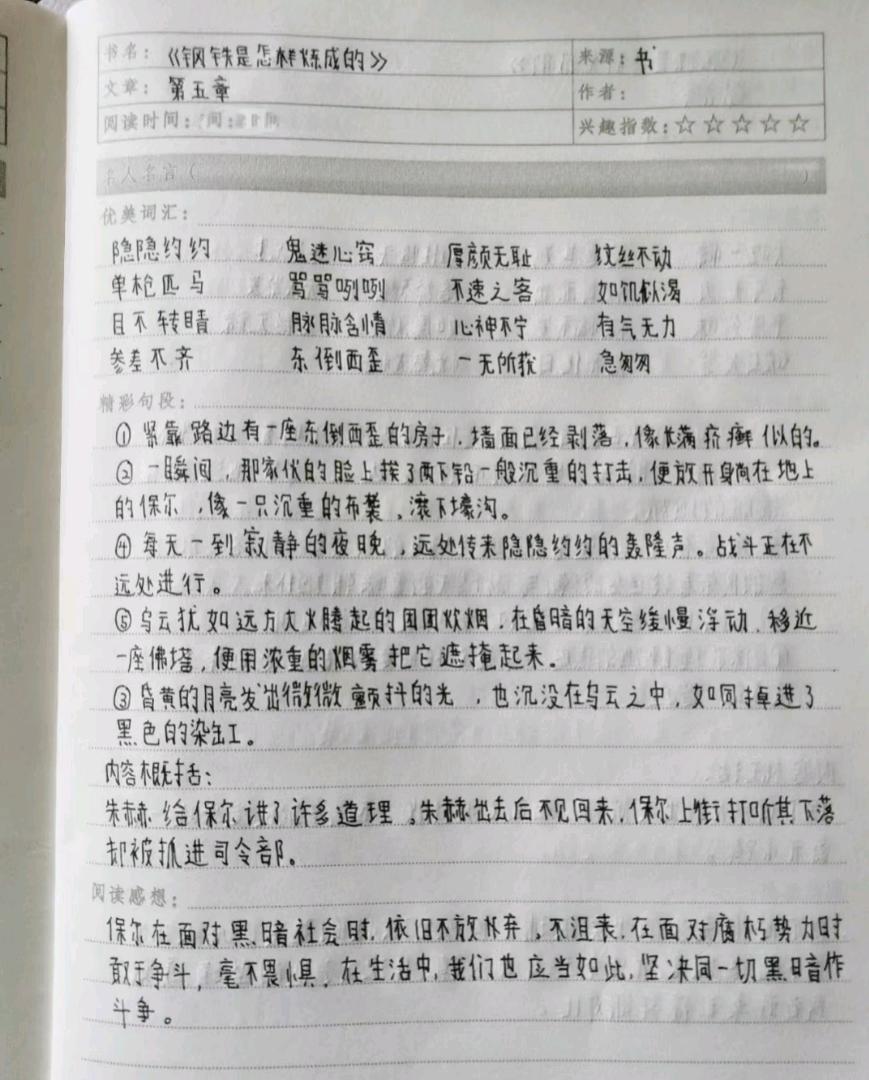 书名：《钢铁是怎样炼成的》 来源：书
文章：第五章 作者：
阅读时间： 兴趣指数：☆☆☆☆☆
名人名言（ ）
优美词汇：
隐隐约约 鬼迷心窍 厚颜无耻 纹丝不动
单枪匹马 骂骂咧咧 不速之客 如饥似渴
目不转睛 脉脉含情 心神不宁 有气无力
参差不齐 东倒西歪 一无所获 急匆匆
精彩句段：
① 紧靠路边有一座东倒西歪的房子，墙面已经剥落，像长满疥癣似的。
② 一瞬间，那家伙的脸上挨了两下铅一般沉重的打击，便放开身躺在地上
的保尔，像一只沉重的布袋，滚下壕沟。
④ 每天一到寂静的夜晚，远处传来隐隐约约的轰隆声。战斗正在不
远处进行。
⑤ 乌云犹如远方大火腾起的团团炊烟，在昏暗的天空缓慢浮动，移近
一座佛塔，便用浓重的烟雾把它遮掩起来。
③ 昏黄的月亮发出微微颤抖的光，也沉没在乌云之中，如同掉进了
黑色的染缸。
内容概括：
朱赫给保尔讲了许多道理。朱赫出去后不见回来，保尔上街打听其下落
却被抓进司令部。
阅读感想：
保尔在面对黑暗社会时，依旧不放弃，不沮丧，在面对腐朽势力时
敢于争斗，毫不畏惧，在生活中，我们也应当如此，坚决同一切黑暗作
斗争。